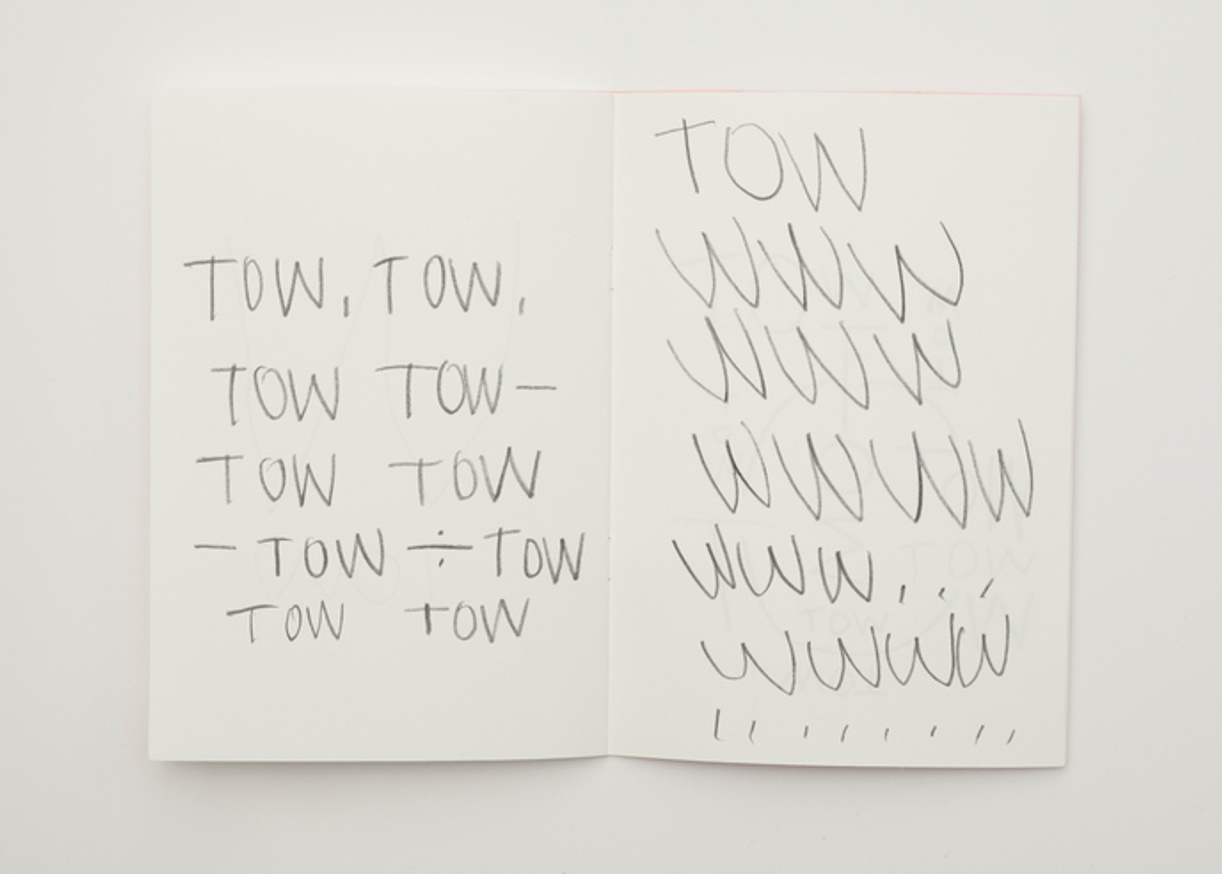 TOW, TOW,
TOW TOW —
TOW TOW
— TOW ÷ TOW
TOW TOW
TOW
WWW
WWW
WWWW
WWW, , ,
WWWW
, , , , , , , ,